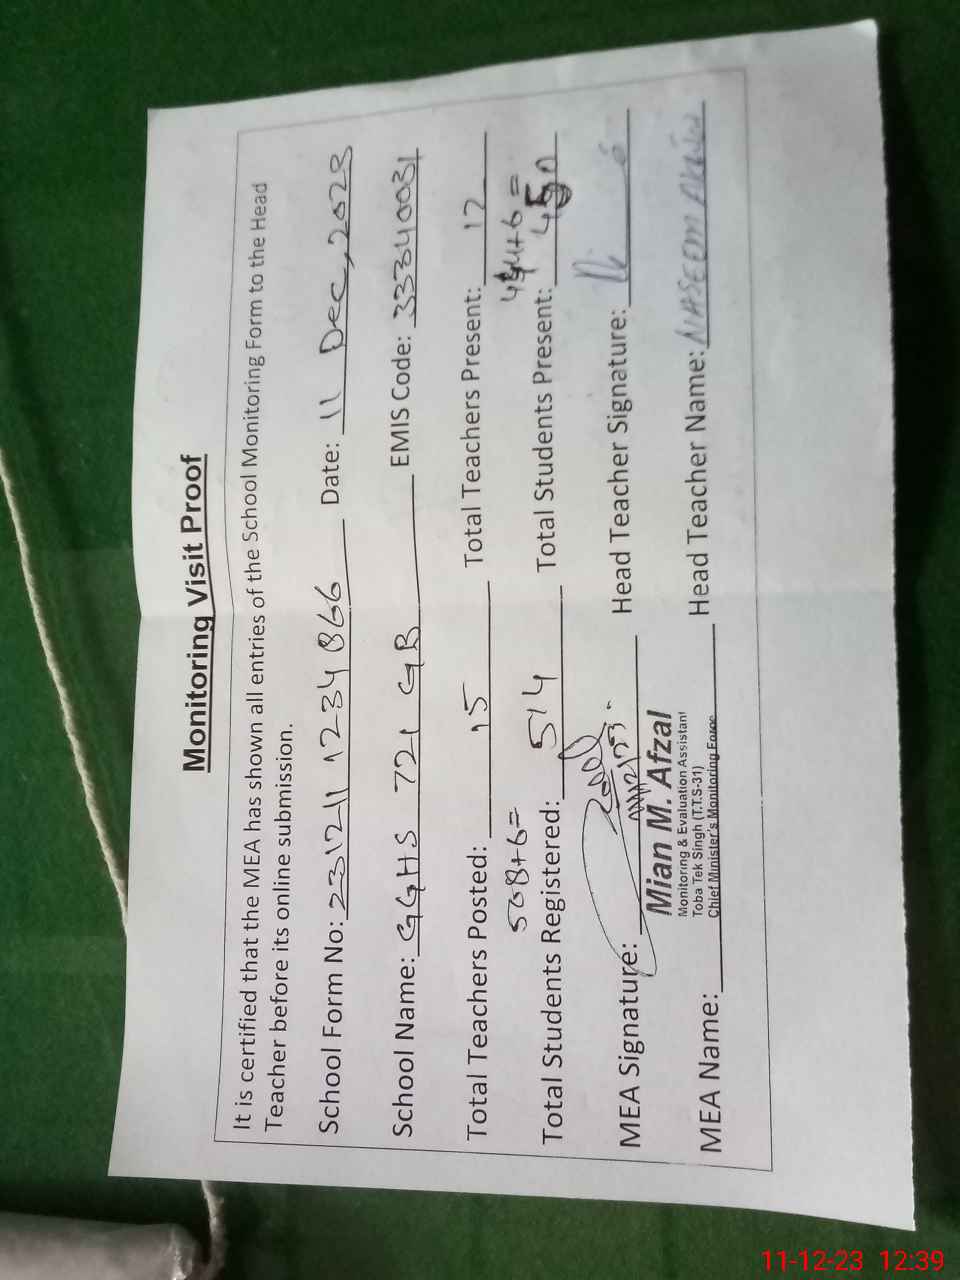 Monitoring Visit Proof
It is certified that the MEA has shown all entries of the School Monitoring Form to the Head
Teacher before its online submission.
School Form No: 231211 1234866 Date: 11 Dec, 2023
School Name: GGHS 721 GB EMIS Code: 33340031
Total Teachers Posted: 15 Total Teachers Present: 12
508+6= 444+6=
Total Students Registered: 514 Total Students Present: 450
MEA Signature: Head Teacher Signature:
Mian M. Afzal
Monitoring & Evaluation Assistant
Toba Tek Singh (T.T.S-31)
Chief Minister's Monitoring Force
MEA Name: Head Teacher Name: NASEEM AKHTAR
11-12-23 12:39